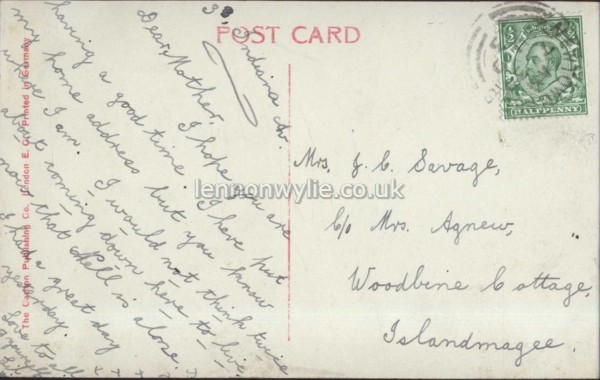 POST CARD
3 Indiana Av.
Dear Mother,
I hope you are
having a good time. I have put
my home address but you know
where I am. I would not think twice
about coming down here to live
now that Nell is alone.
a great day
yesterday.
Love to all
The Carlton Publishing Co., London E.C. Printed in Germany
HALFPENNY
Mrs. J. C. Savage,
C/o Mrs. Agnew,
Woodbine Cottage,
Islandmagee.
lennonwylie.co.uk